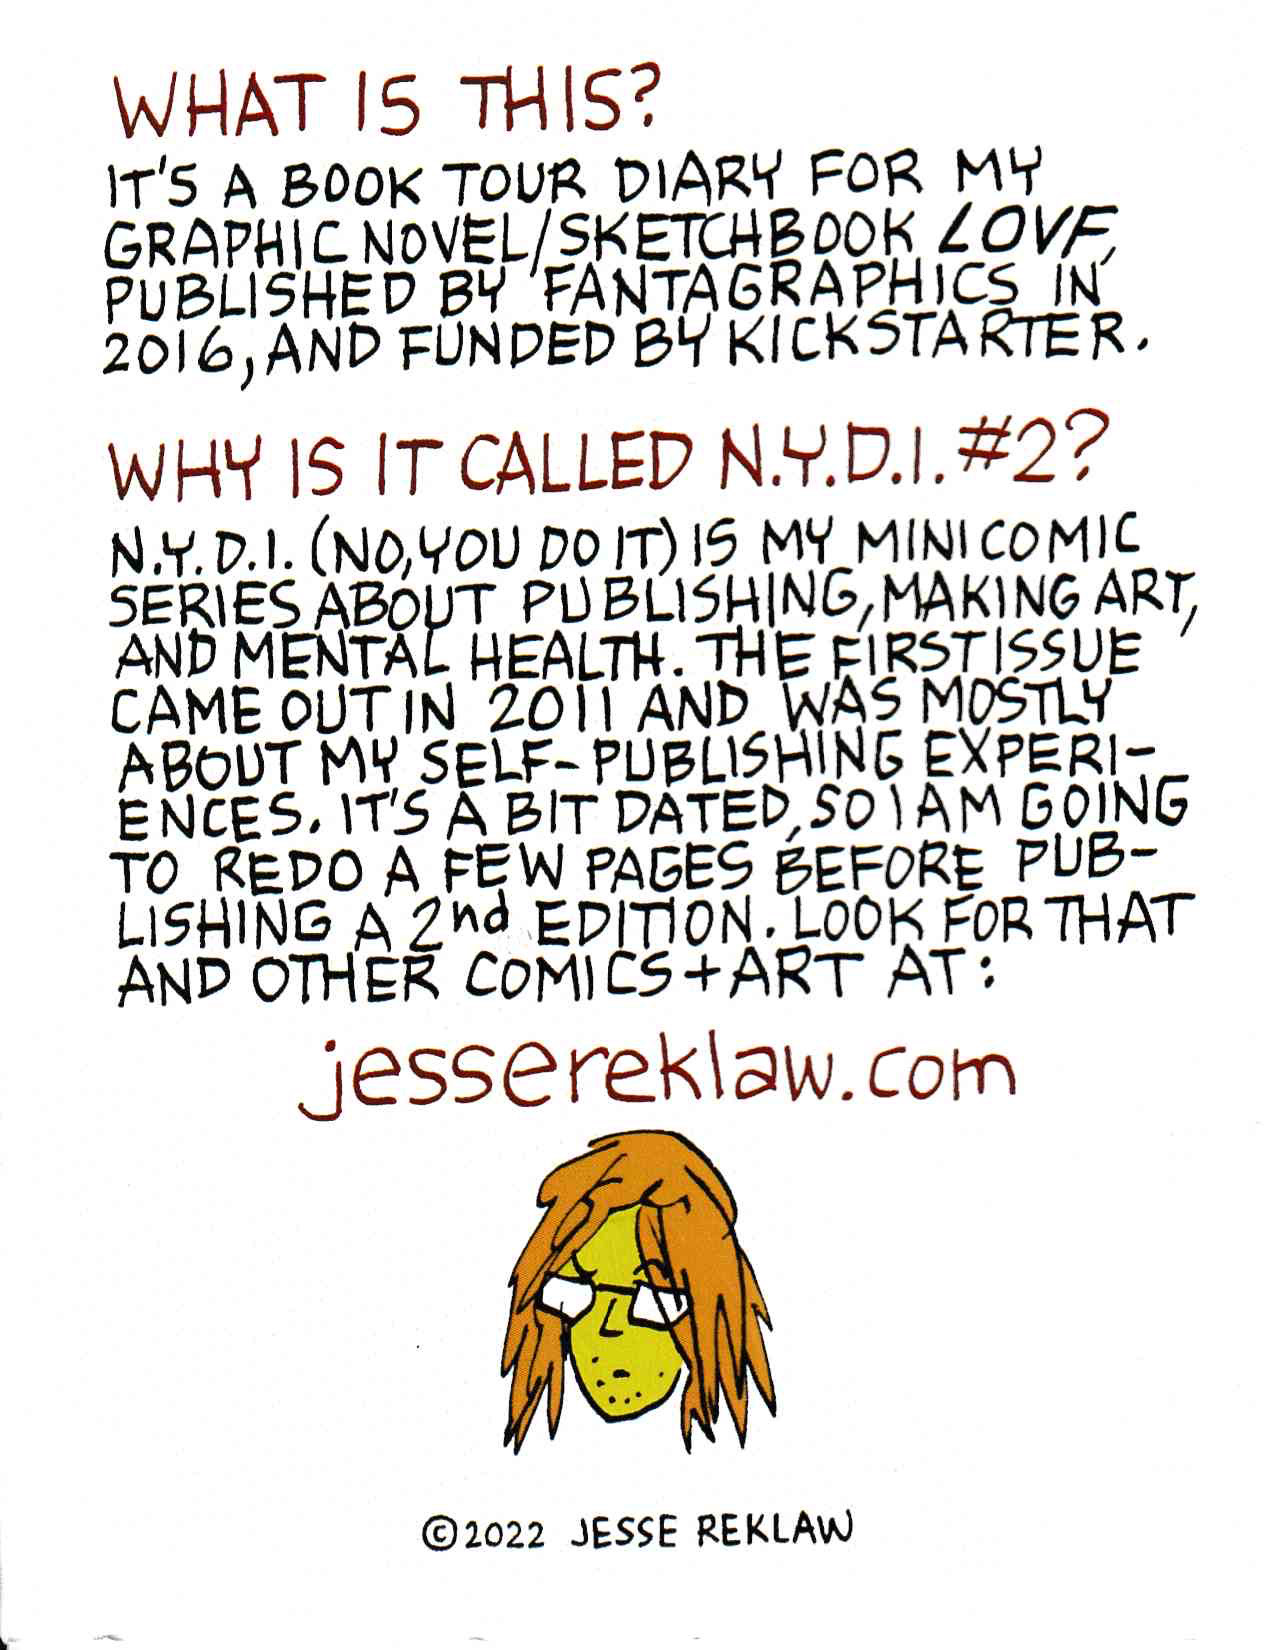 WHAT IS THIS?
IT'S A BOOK TOUR DIARY FOR MY
GRAPHIC NOVEL/SKETCHBOOK LOVF,
PUBLISHED BY FANTAGRAPHICS IN
2016, AND FUNDED BY KICKSTARTER.
WHY IS IT CALLED N.Y.D.I. #2?
N.Y.D.I. (NO, YOU DO IT) IS MY MINICOMIC
SERIES ABOUT PUBLISHING, MAKING ART,
AND MENTAL HEALTH. THE FIRST ISSUE
CAME OUT IN 2011 AND WAS MOSTLY
ABOUT MY SELF-PUBLISHING EXPERI-
ENCES. IT'S A BIT DATED, SO I AM GOING
TO REDO A FEW PAGES BEFORE PUB-
LISHING A 2nd EDITION. LOOK FOR THAT
AND OTHER COMICS + ART AT:
jessereklaw.com
© 2022 JESSE REKLAW